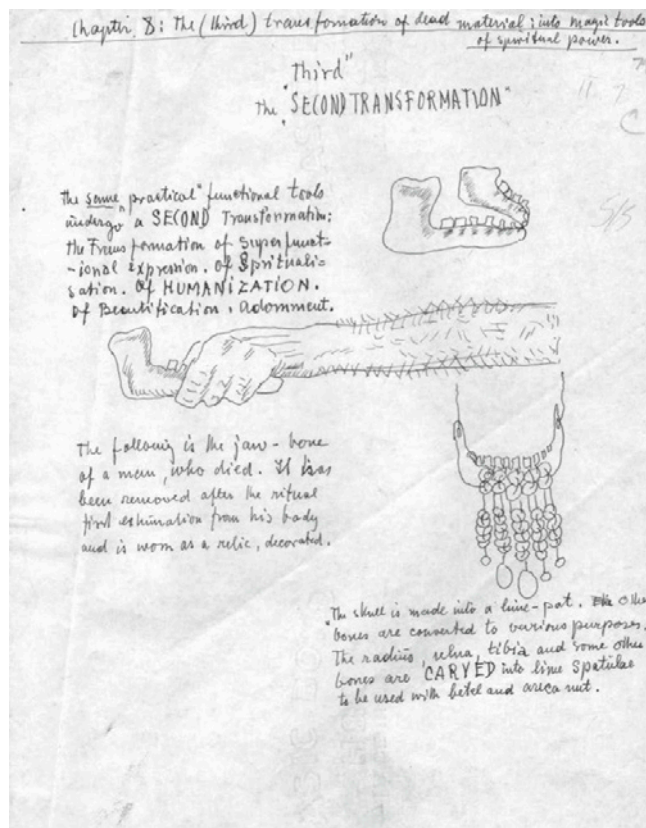 Chapter 8: The (third) transformation of dead material into magic tools
of spiritual power.
"third"
the "SECOND TRANSFORMATION"
the same "practical" functional tools
undergo a SECOND Transformation:
the Transformation of Superfunct-
-ional expression. of Spirituali-
sation. of HUMANIZATION.
of Beautification. adornment.
The following is the jaw-bone
of a man, who died. It has
been removed after the ritual
first exhumation from his body
and is worn as a relic, decorated.
"The skull is made into a lime-pot. Other
bones are converted to various purposes.
The radius, ulna, tibia and some other
bones are CARVED into lime spatulae
to be used with betel and areca nut.